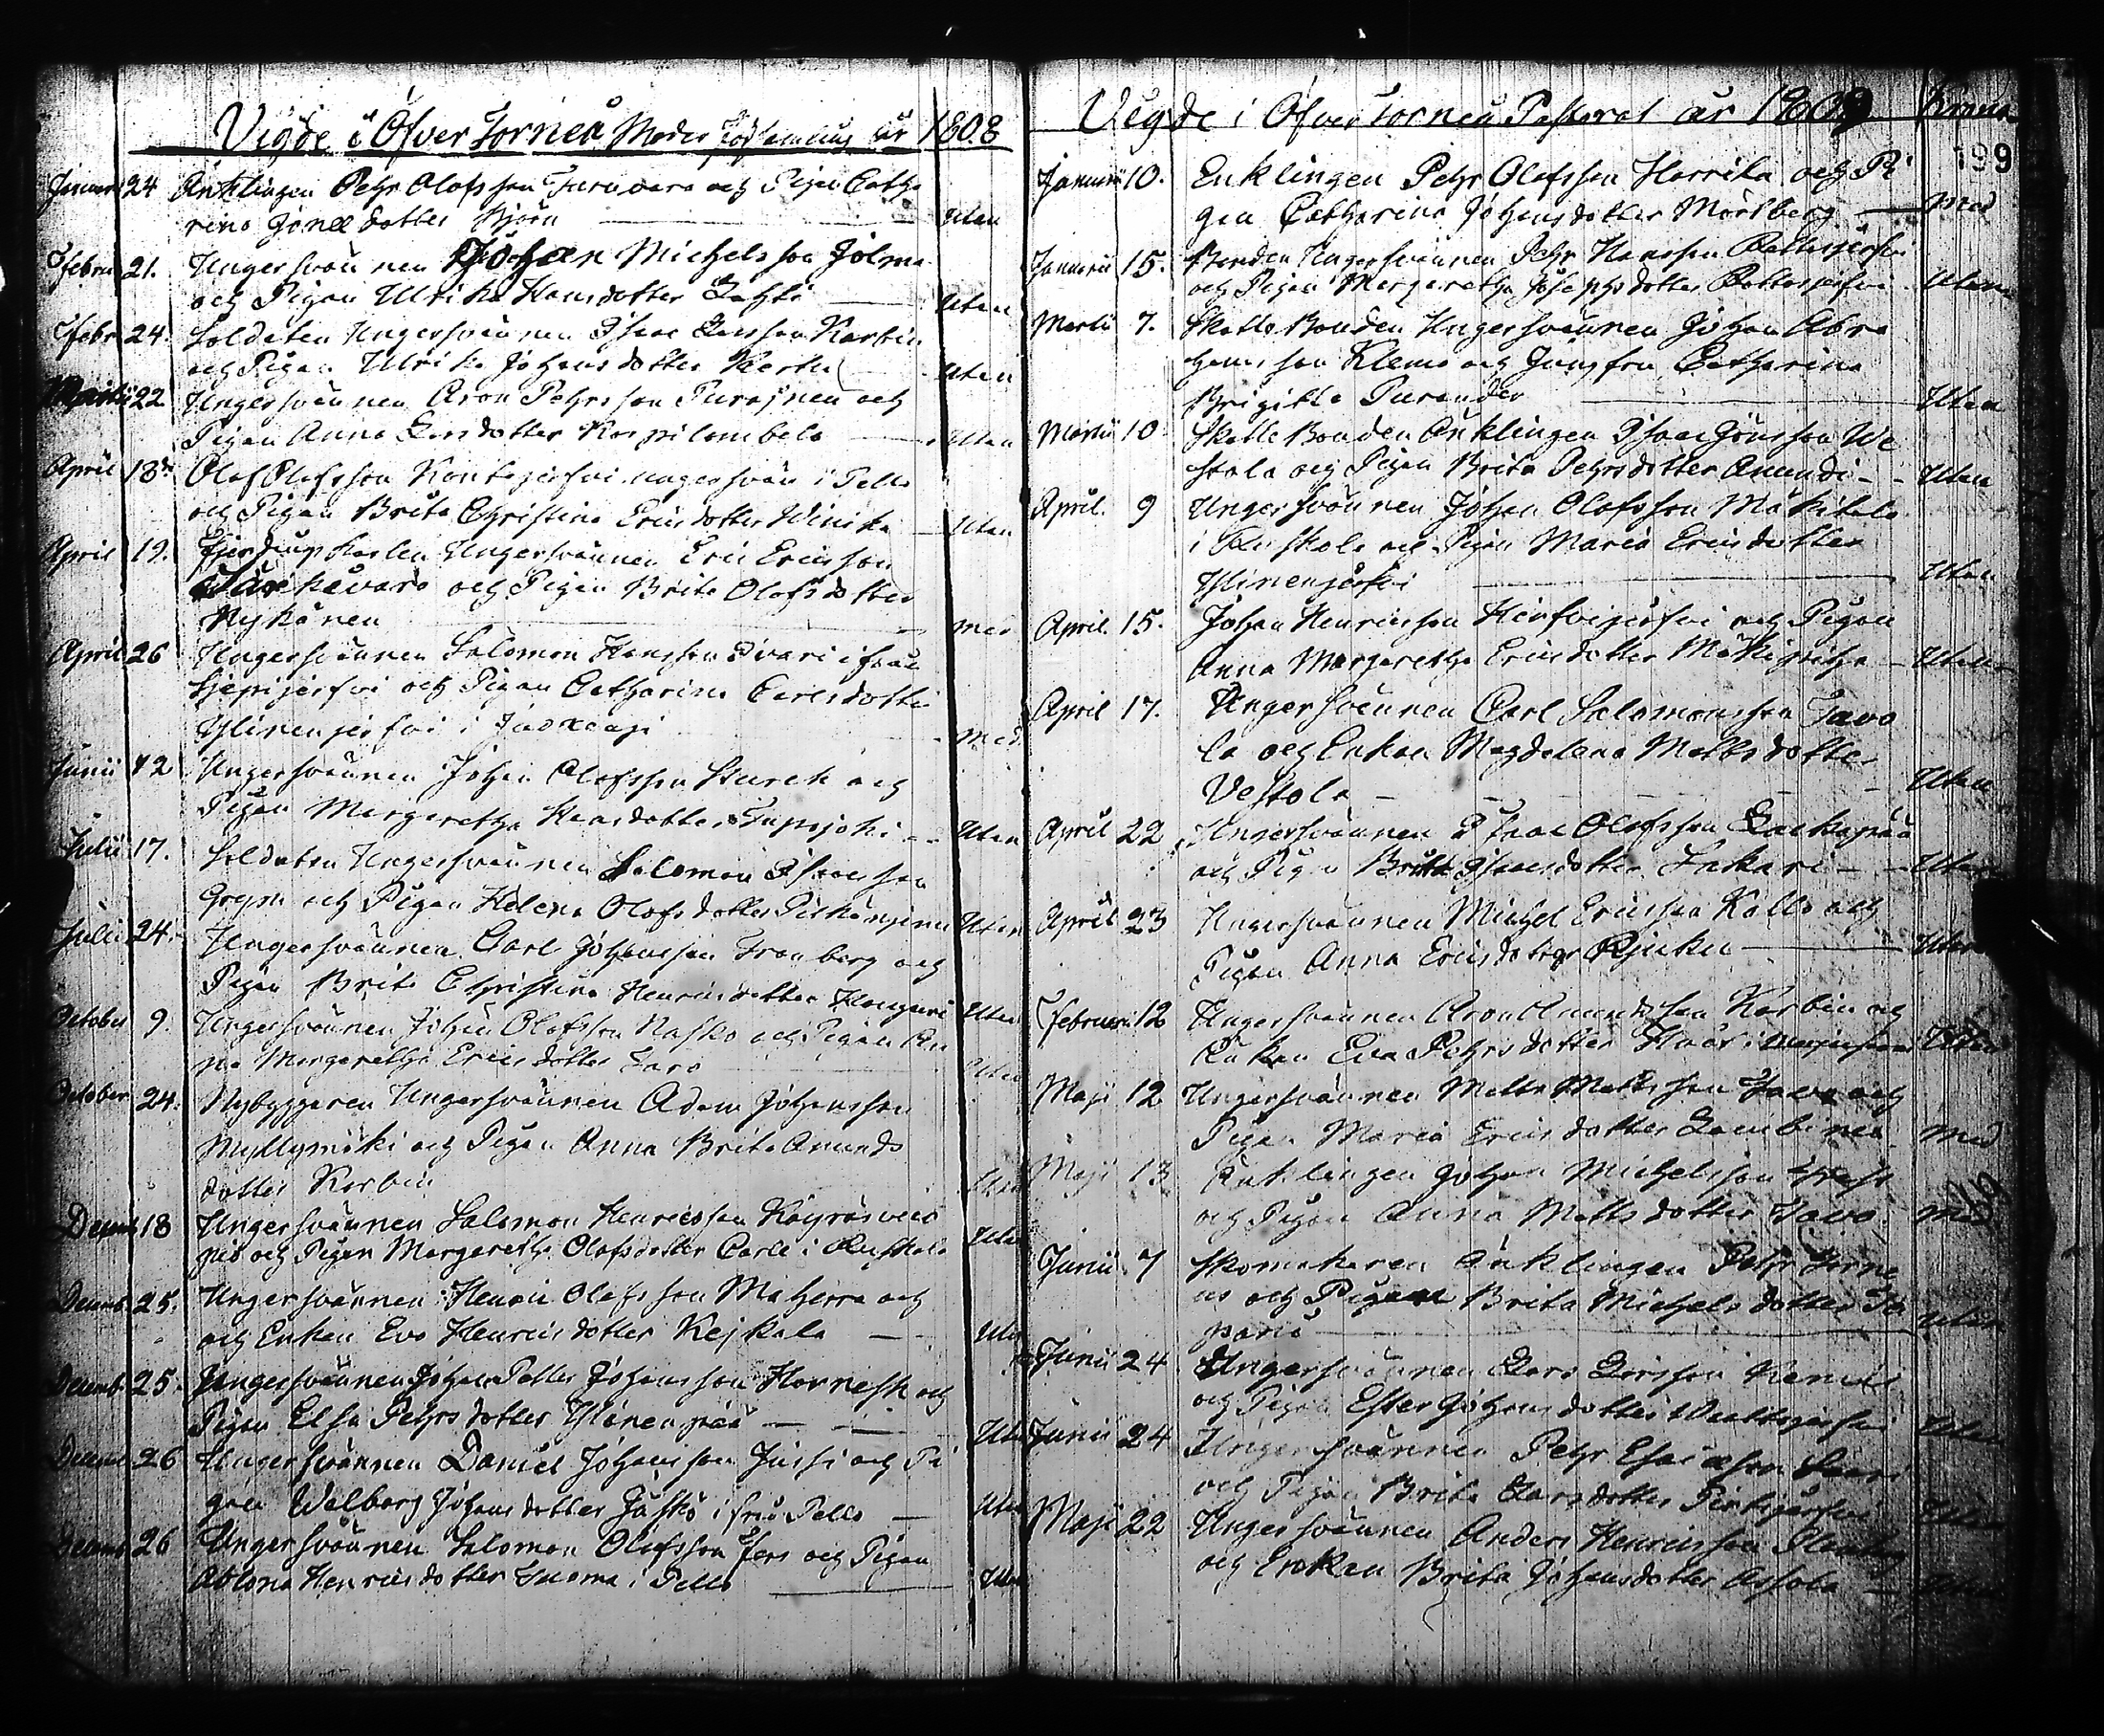 Vigde i Öfver Torneå Moder Församling år 1808
Januari 24 Änklingen Pehr Olofsson Turovara och Pigan Catha
rina Jonæ dotter Björn — Utan
Febru 21. Ungersvännen Johan Michelsson Jolma
och Pigan Ulrika Hansdotter Lahti — Utan
Febr 24. Soldaten Ungersvännen Isaac Larsson Korbin
och Pigan Ulrika Johansdotter Kertu — Utan
Martii 22 Ungersvännen Aron Pehrsson Purainen och
Pigan Anna Larsdotter Korpilombolo — Utan
April 18 Olof Olofsson Kontojerfvi ungersvän i Pello
och Pigan Brita Christina Ericsdotter Winika — Utan
April 19. Fjerdingskarlen Ungersvännen Eric Ericsson
Särkävara och Pigan Brita Olofsdotter
Nykänen — med
April 26 Ungersvännen Salomon Hansson Ivari ifrån
Sjepijerfvi och Pigan Catharina Carlsdotter
Ylinenjerfvi i Juoxengi — Med
Junii 12 Ungersvännen Johan Olofsson Starck och
Pigan Margaretha Hansdotter Tupojoki — Utan
Julii 17. Soldaten Ungersvännen Salomon Isaacsson
och Pigan Helena Olofsdotter — Utan
Julii 24. Ungersvännen Carl Johansson Fronberg och
Pigan Brita Christina Henricsdotter — Utan
October 9. Ungersvännen Johan Olofsson Nasko och Pigan An
na Margaretha Ericsdotter Taro — Utan
October 24. Nybyggaren Ungersvännen Adam Johansson
Myllymäki och Pigan Anna Brita Amunds
dotter Korbin — Utan
Decemb 18 Ungersvännen Salomon Henricsson
och Pigan Margaretha Olofsdotter Carle i Ruskola — Utan
Decemb 25. Ungersvännen Henric Olofsson Maherra och
och Enkan Eva Henricsdotter Kejkala — Utan
Decemb 25. Ungersvännen Johan Petter Johansson Hornesk och
Pigan Elsa Pehrsdotter Ylinenpää — Utan
Decemb 26 Ungersvännen Daniel Johansson Jussi och Pi
gan Walborg Johansdotter Jäskö ifrån Pello — Utan
Decemb 26 Ungersvännen Salomon Olofsson Fors och Pigan
Abluna Henricsdotter Tuoma i Pello — Utan
Vigde i Öfver Torneå Pastorat år 1809 Krona
199
Januarii 10. Enklingen Pehr Olofsson Harrila och Pi
gan Catharina Johansdotter Mörtberg — Med
Januarii 15. Bonden Ungersvännen Pehr Hansson Rattosjerfvi
och Pigan Margaretha Josephsdotter Rattosjerfvi — Utan
Martii 7. Skatte Bonden Ungersvännen Johan Abra
hamsson Klemo och Jungfrun Catharina
Brigitta Turander — Utan
Martii 10 Skatte Bonden Änklingen Isaac Jönsson We
stola och Pigan Brita Pehrsdotter Amundi — Utan
April. 9 Ungersvännen Johan Olofsson Mäkitalo
i Ruskola och Pigan Maria Ericsdotter
Ylinenjärfvi — Utan
April. 15. Johan Henricsson Hirfvijerfvi och Pigan
Anna Margaretha Ericsdotter Mäkipirtja — Utan
April 17. Ungersvännen Carl Salomonsson Tavo
la och Enkan Magdalena Mattsdotter
Vestola — Utan
April 22 Ungersvännen Isaac Olofsson Laukapää
och Pigan Brita Isaacsdotter Sakari — Utan
April 23 Ungersvännen Michel Ericsson Kallo och
Pigan Anna Ericsdotter — Utan
Februarii 12 Ungersvännen Aron Amundsson Korbin och
Enkan Eva Pehrsdotter — Utan
Maji 12 Ungersvännen Matts Mattsson Tavo och
Pigan Maria Ericsdotter Lambinen — Med
Maji 13 Änklingen Johan Michelsson
och Pigan Anna Mattsdotter Tavo — Med
Junii 7 Skomakaren Änklingen Pehr Torne
us och Pigan Brita Michelsdotter
— Utan
Junii 24 Ungersvännen Lars Larsson
och Pigan Ester Johansdotter — Utan
Junii 24 Ungersvännen Pehr Esaiasson
och Pigan Brita Larsdotter — Utan
Maji 22 Ungersvännen Anders Henricsson
och Enkan Brita Johansdotter Assola — Utan